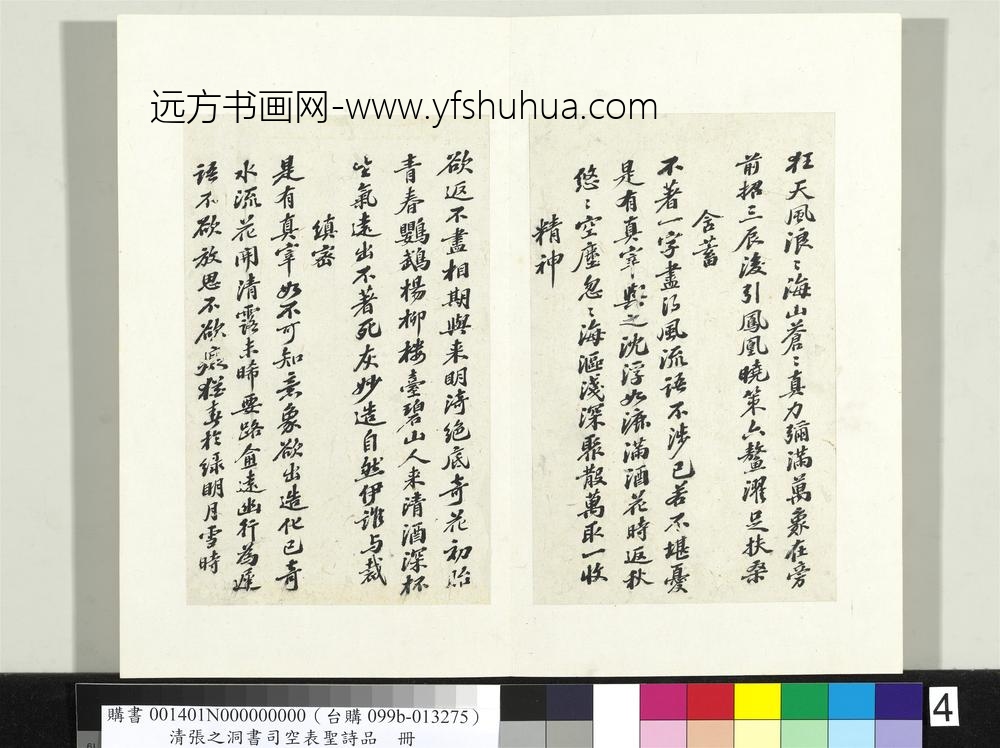 远方书画网-www.yfshuhua.com
狂天風浪〻海山蒼〻真力彌滿萬象在旁
前招三辰後引鳳凰曉策六鼇濯足扶桑
含蓄
不著一字盡得風流語不涉已若不堪憂
是有真宰與之沈浮如漉滿酒花時返秋
悠〻空塵忽〻海漚淺深聚散萬取一收
精神
欲返不盡相期與来明漪絶底奇花初胎
青春鸚鵡楊柳樓臺碧山人来清酒深杯
生氣遠出不著死灰妙造自然伊誰与裁
縝密
是有真宰如不可知意象欲出造化已奇
水流花開清露未晞要路愈遠幽行為遲
語不欲放思不欲癡猶春於緑明月雪時
購書 001401N000000000（台購 099b-013275）
清張之洞書司空表聖詩品 冊
4